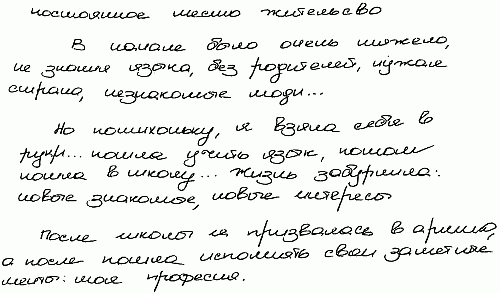 постоянное место жительсво
В начале было очень тяжело,
не зная языка, без родителей, чужая
страна, незнакомые люди...
Но потихоньку, я взяла себя в
руки... пошла учить язык, потом
пошла в школу... жизнь забурлила:
новые знакомые, новые интересы
После школы я призвалась в армию,
а после пошла исполнять свои заметные
мечты: моя професия.